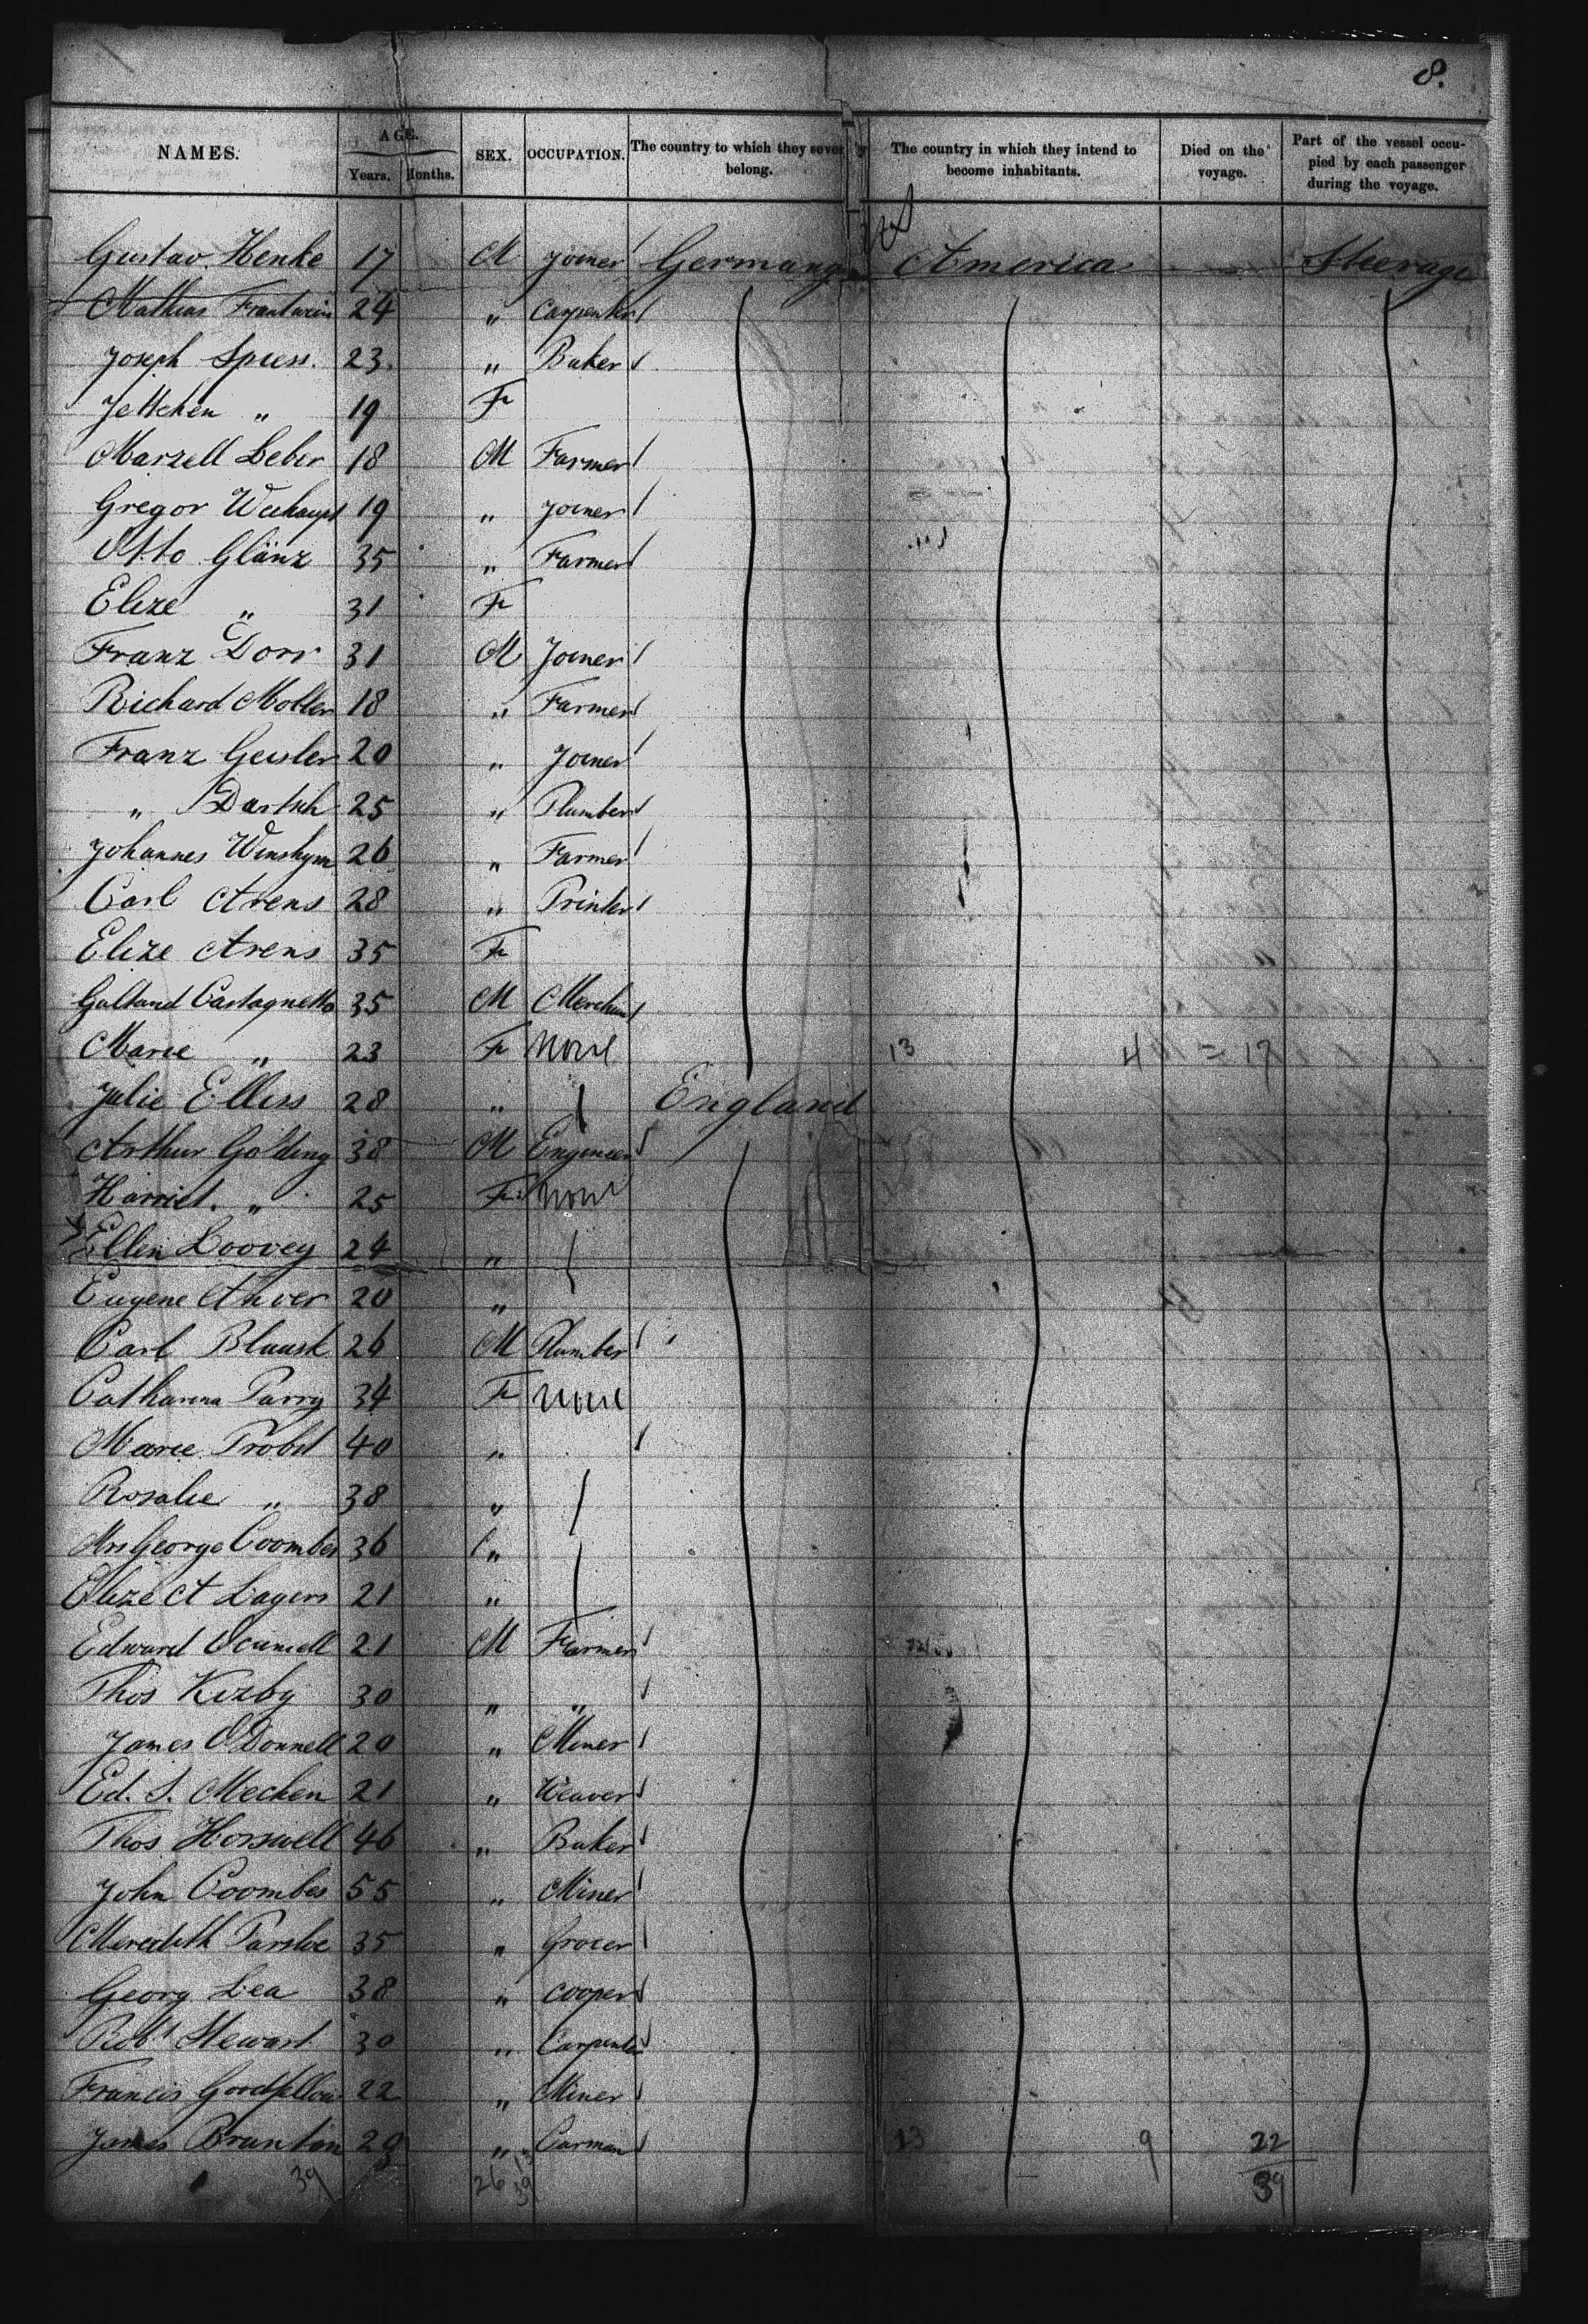 8.
NAMES. AGE. Years. Months. SEX. OCCUPATION. The country to which they severally belong. The country in which they intend to become inhabitants. Died on the voyage. Part of the vessel occupied by each passenger during the voyage.
Gustav Henke 17 M Joiner Germany America Steerage
Mathias Frantwein 24 " Carpenter
Joseph Spiess. 23. " Baker
Jettchen " 19 F
Marzell Leber 18 M Farmer
Gregor 19 " Joiner
Otto Glänz 35 " Farmer
Elize " 31 F
Franz Dorr 31 M Joiner
Richard Moller 18 " Farmer
Franz Geisler 20 " Joiner
" Dartsch 25 " Plumber
Johannes 26 " Farmer
Carl Arens 28 " Printer
Elize Arens 35 F
Galland Castagnetto 35 M Merchant
Marie " 23 F None 13 4 = 17
Julie Elliss 28 " England
Arthur Golding 38 M Engineer
Harriet. " 25 F None
Ellen Loovey 24 "
Eugene 20 "
Carl 26 M Plumber
Catharina Parry 34 F None
Marie Probst 40 "
Rosalie " 38 "
Mrs George Coombes 36 "
Elize A Lagers 21 "
Edward 21 M Farmer
Thos Kizby 30 " "
James O'Donnell 20 " Miner
Ed. S. Mechen 21 " Weaver
Thos Horswell 46 " Baker
John Coombes 55 " Miner
Meredith Parsloe 35 " Grocer
Georg Lea 38 " Cooper
Robt Stewart 30 " Carpenter
Francis Goodfellow 22 " Miner
James Brunton 29 " Carman 13 9 22
39 26 13 39 39